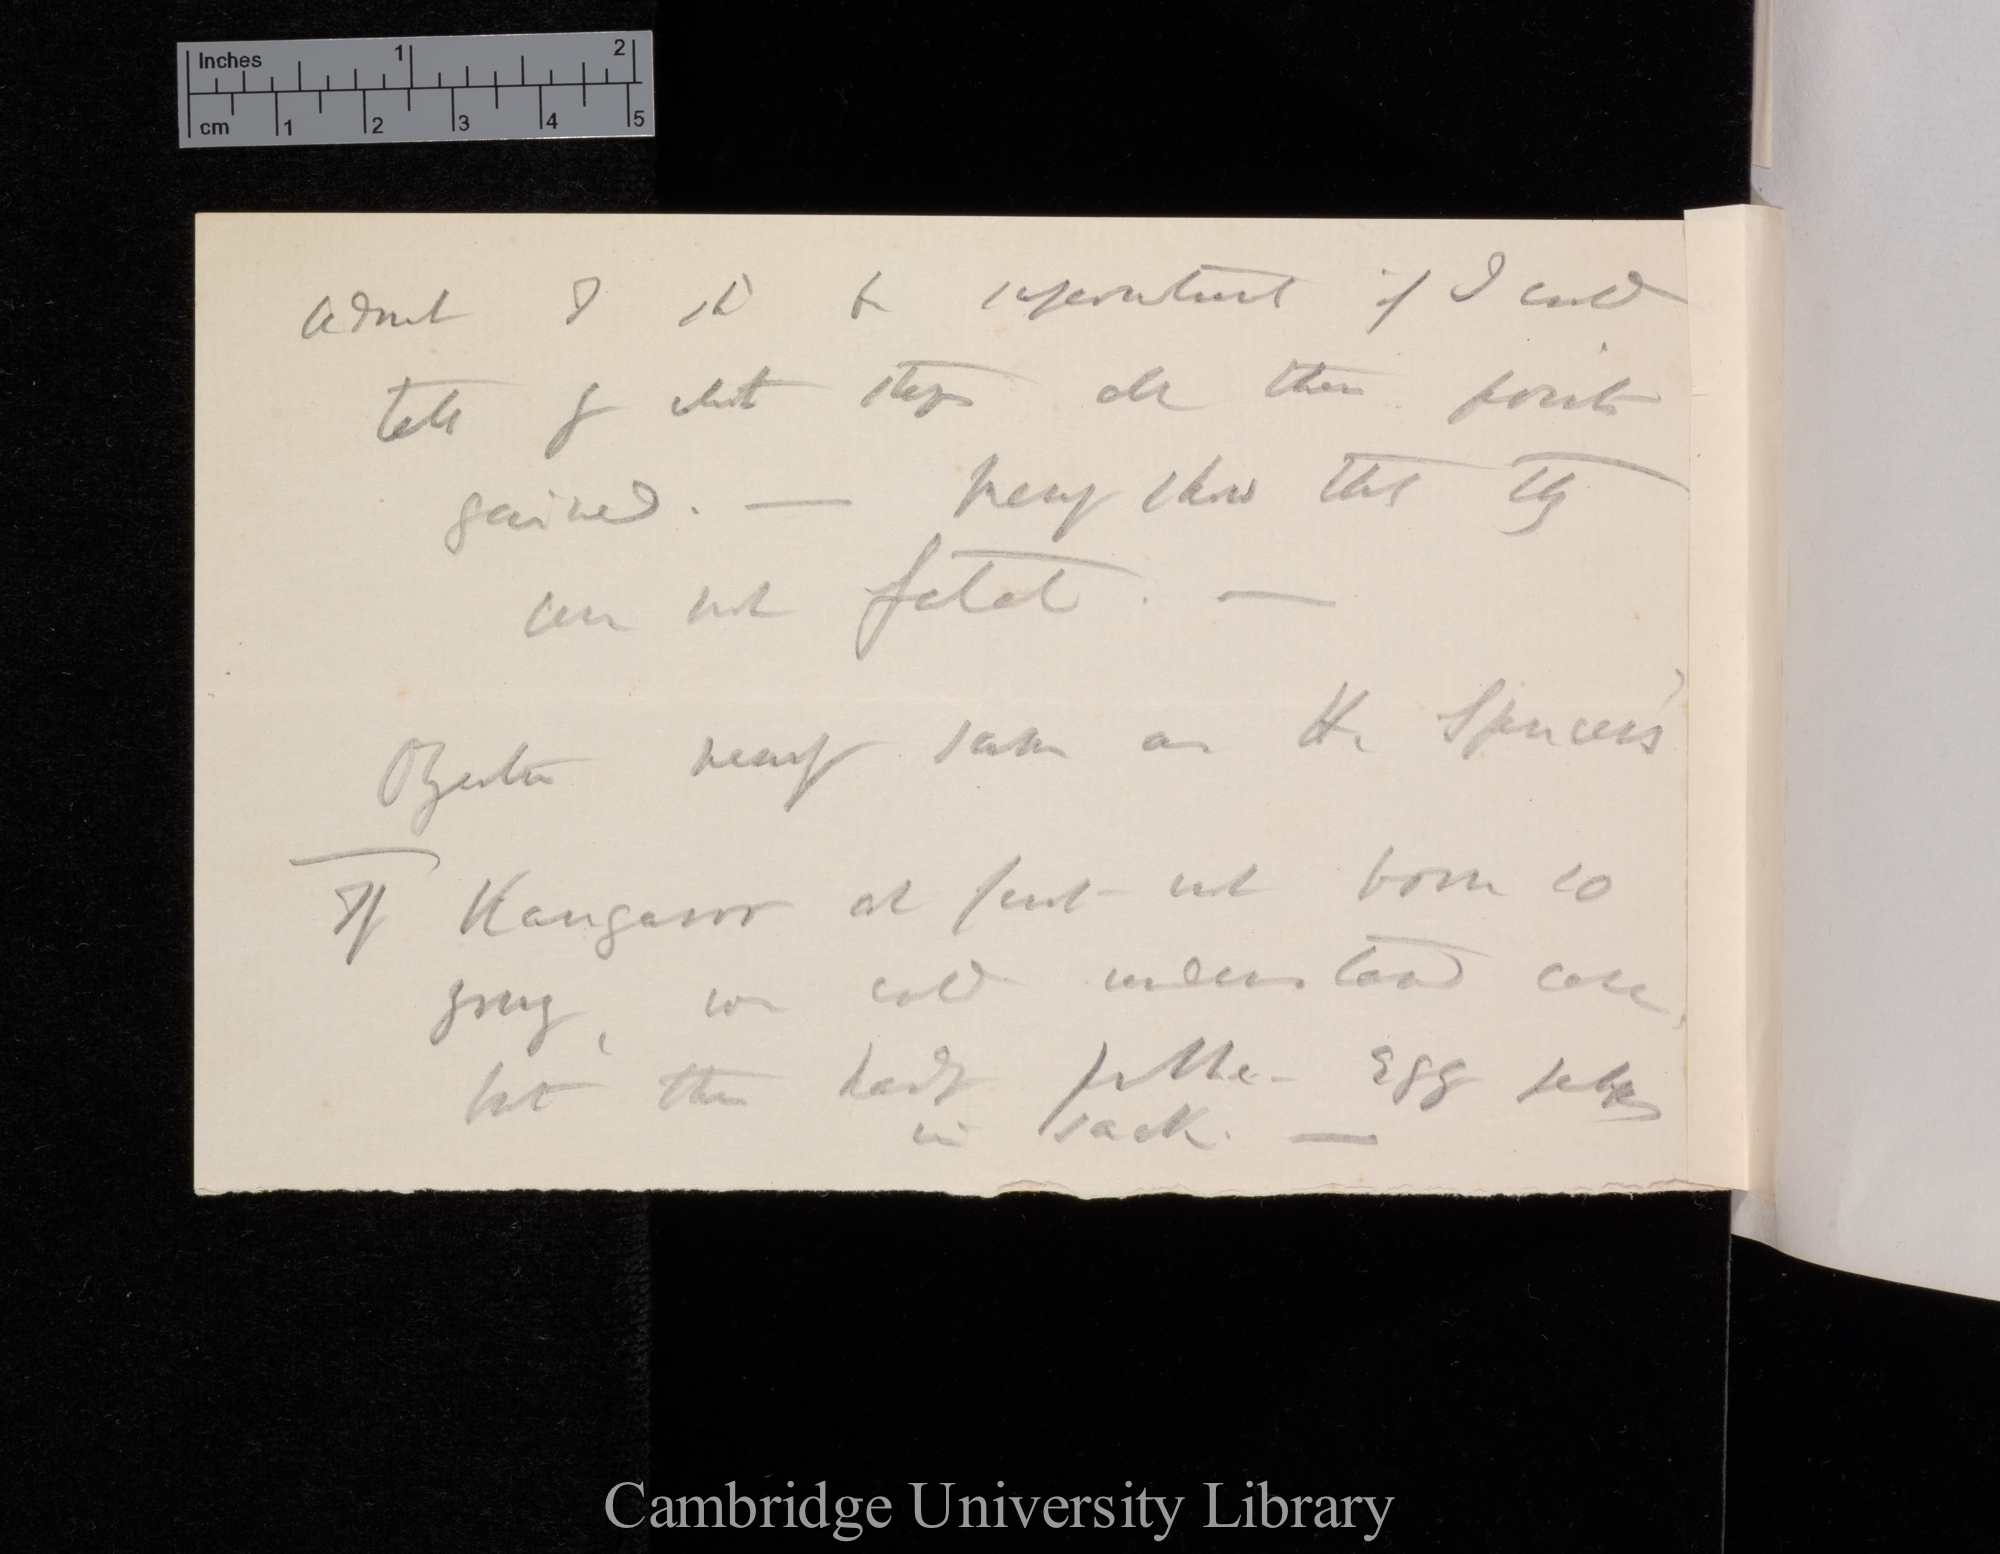 Inches 1 2
cm 1 2 3 4 5
admit I shd be important if I could
tell by what steps all these points
gained. — merely show that they
are not fatal. —
Objection nearly same as H. Spencer's
If Kangaroo at first not born so
young, we could understand case,
but then hardly Egg
in sack. —
Cambridge University Library